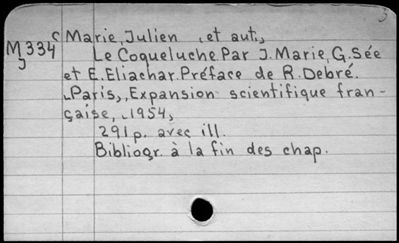 3
C Marie, Julien , et aut.,
M334 Le Coqueluche Par J. Marie, G. Sée
J et E. Eliachar. Préface de R. Debré.
Paris, Expansion scientifique fran-
çaise, 1954,
291 p. avec ill.
Bibliogr. à la fin des chap.